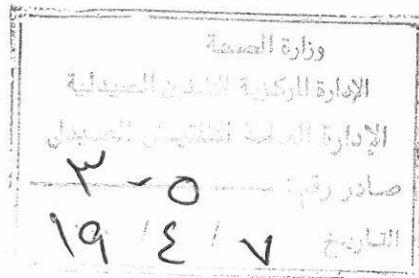 وزارة الصحة
الإدارة المركزية للشئون الصيدلية
الإدارة العامة للتفتيش الصيدلى
صادر رقم:
التاريخ ٧ / ٤ / ١٩